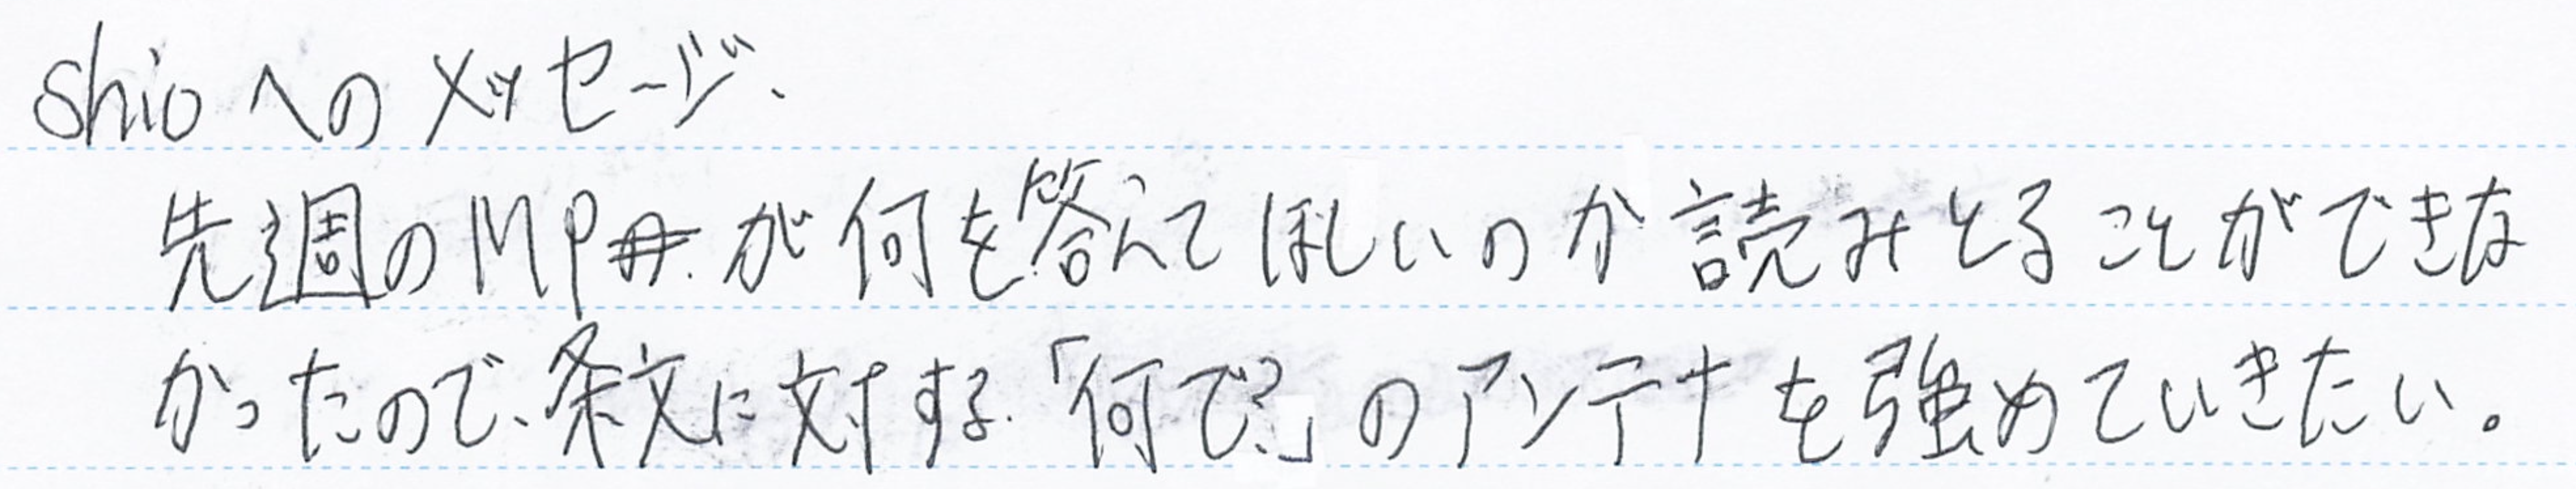 shioへのメッセージ、
先週のMP冊が何を答えてほしいのか読みとることができな
かったので、条文に対する「何で？」のアンテナを強めていきたい。